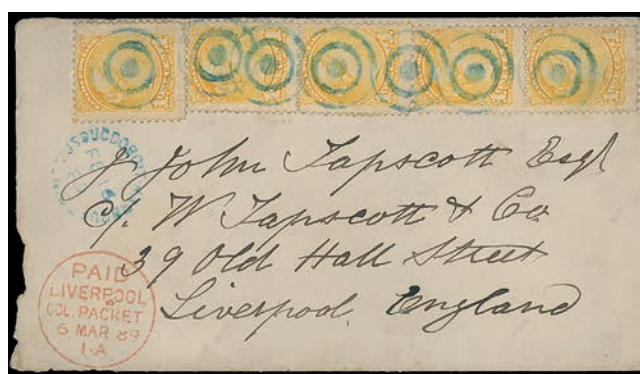 J. John Tapscott Esq
c/. W Tapscott & Co
39 Old Hall Street
Liverpool. England
PAID
LIVERPOOL
COL. PACKET
6 MAR 89
1-A